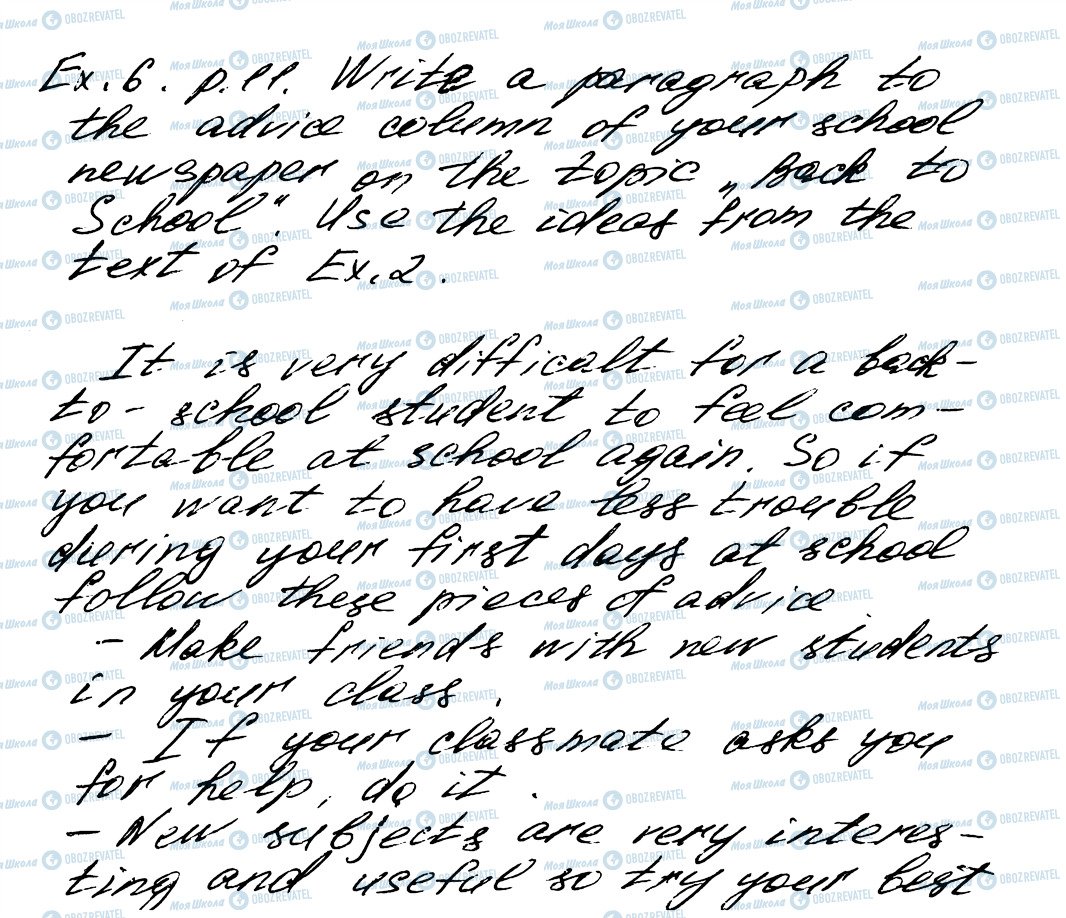 Ex. 6. p. 11. Write a paragraph to
the advice column of your school
newspaper on the topic „Back to
School". Use the ideas from the
text of Ex. 2.
It is very difficult for a back-
to-school student to feel com-
fortable at school again. So if
you want to have less trouble
during your first days at school
follow these pieces of advice.
- Make friends with new students
in your class.
- If your classmate asks you
for help, do it.
- New subjects are very interes-
ting and useful so try your best